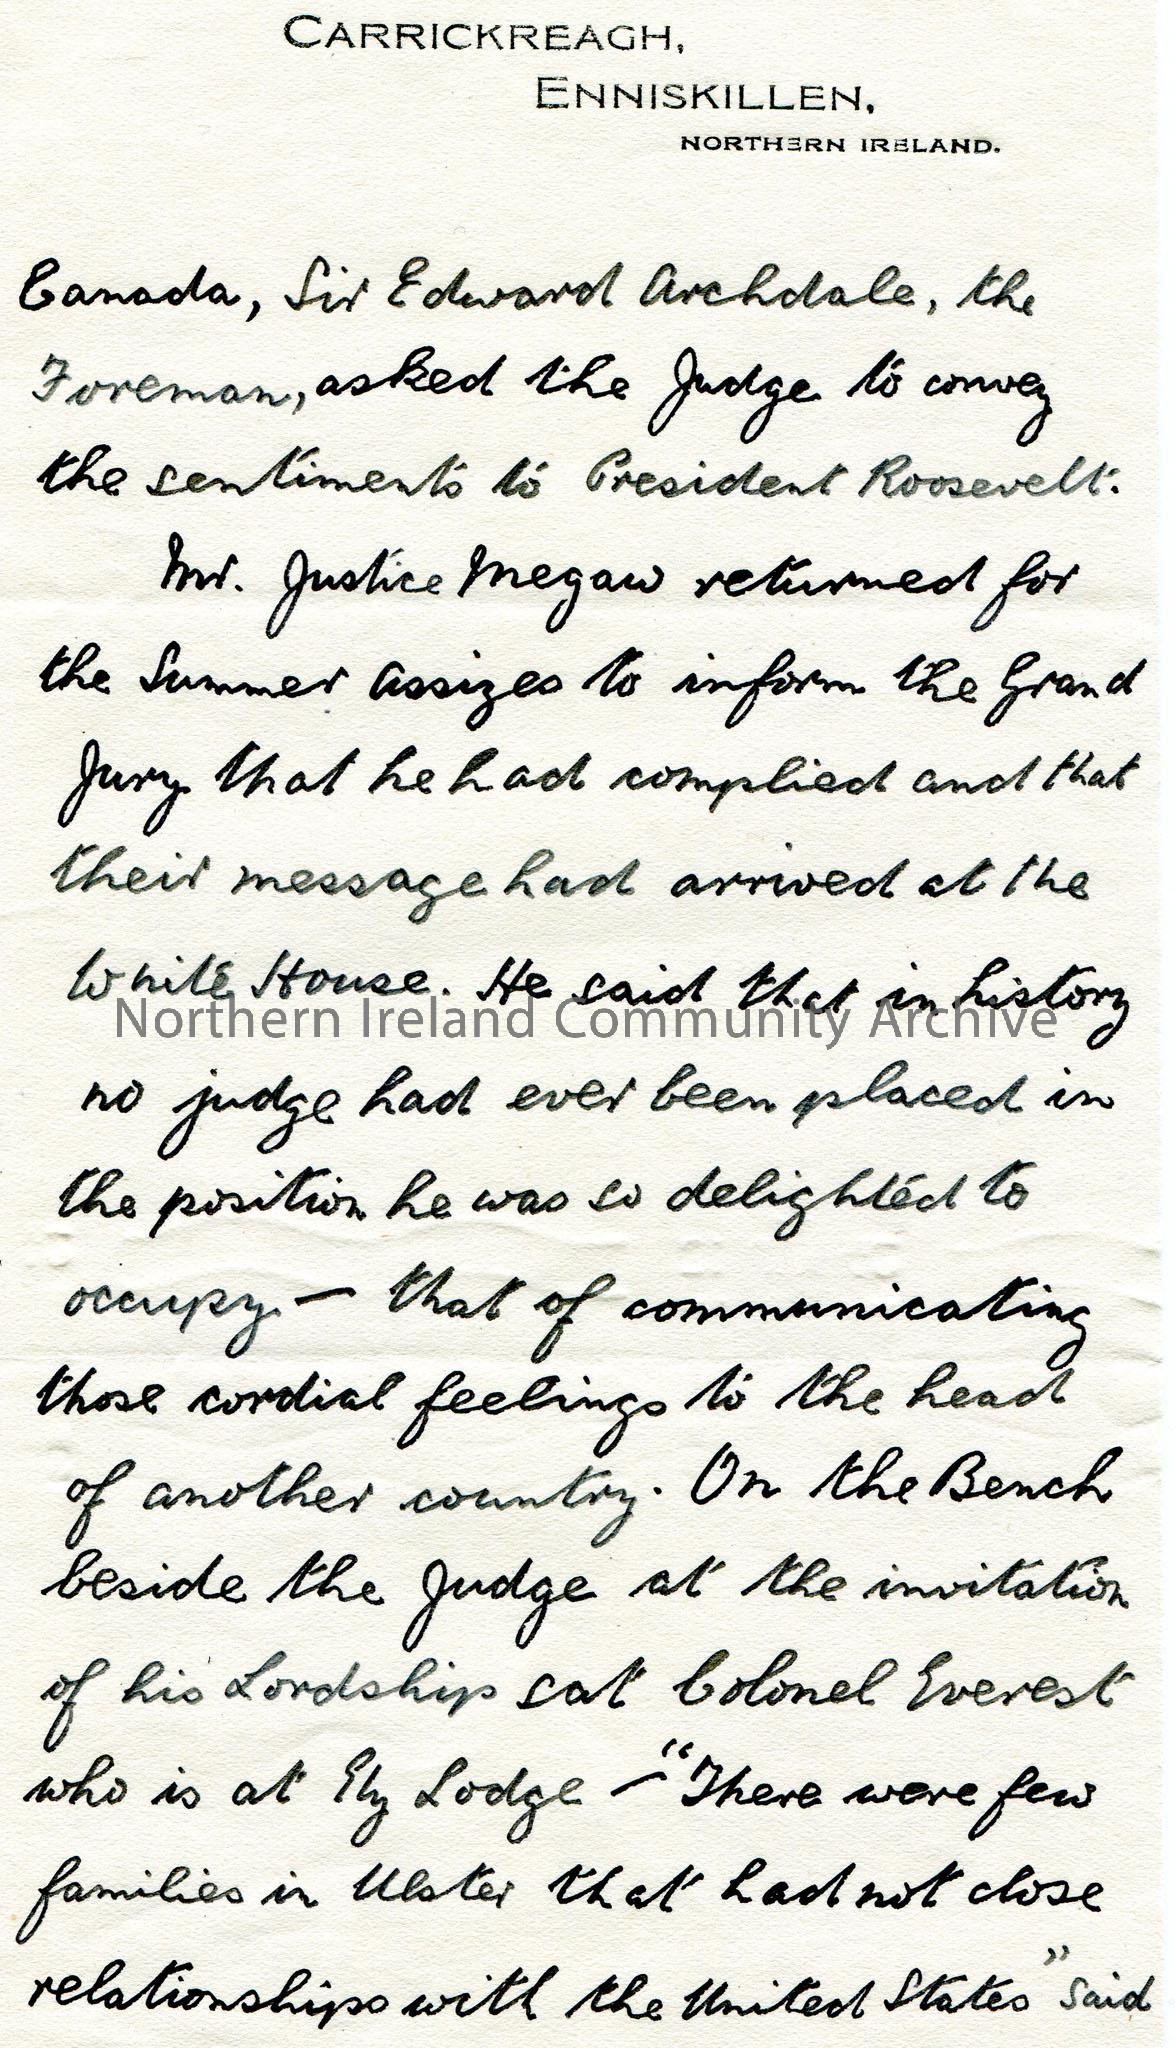 CARRICKREAGH,
ENNISKILLEN,
NORTHERN IRELAND.
Canada, Sir Edward Archdale, the
Foreman, asked the Judge to convey
the sentiments to President Roosevelt.
Mr. Justice Megaw returned for
the Summer Assizes to inform the Grand
Jury that he had complied and that
their message had arrived at the
White House. He said that in history
Northern Ireland Community Archive
no judge had ever been placed in
the position he was so delighted to
occupy – that of communicating
those cordial feelings to the head
of another country. On the Bench
beside the Judge at the invitation
of his Lordship sat Colonel Everest
who is at Ely Lodge – "There were few
families in Ulster that had not close
relationships with the United States" said